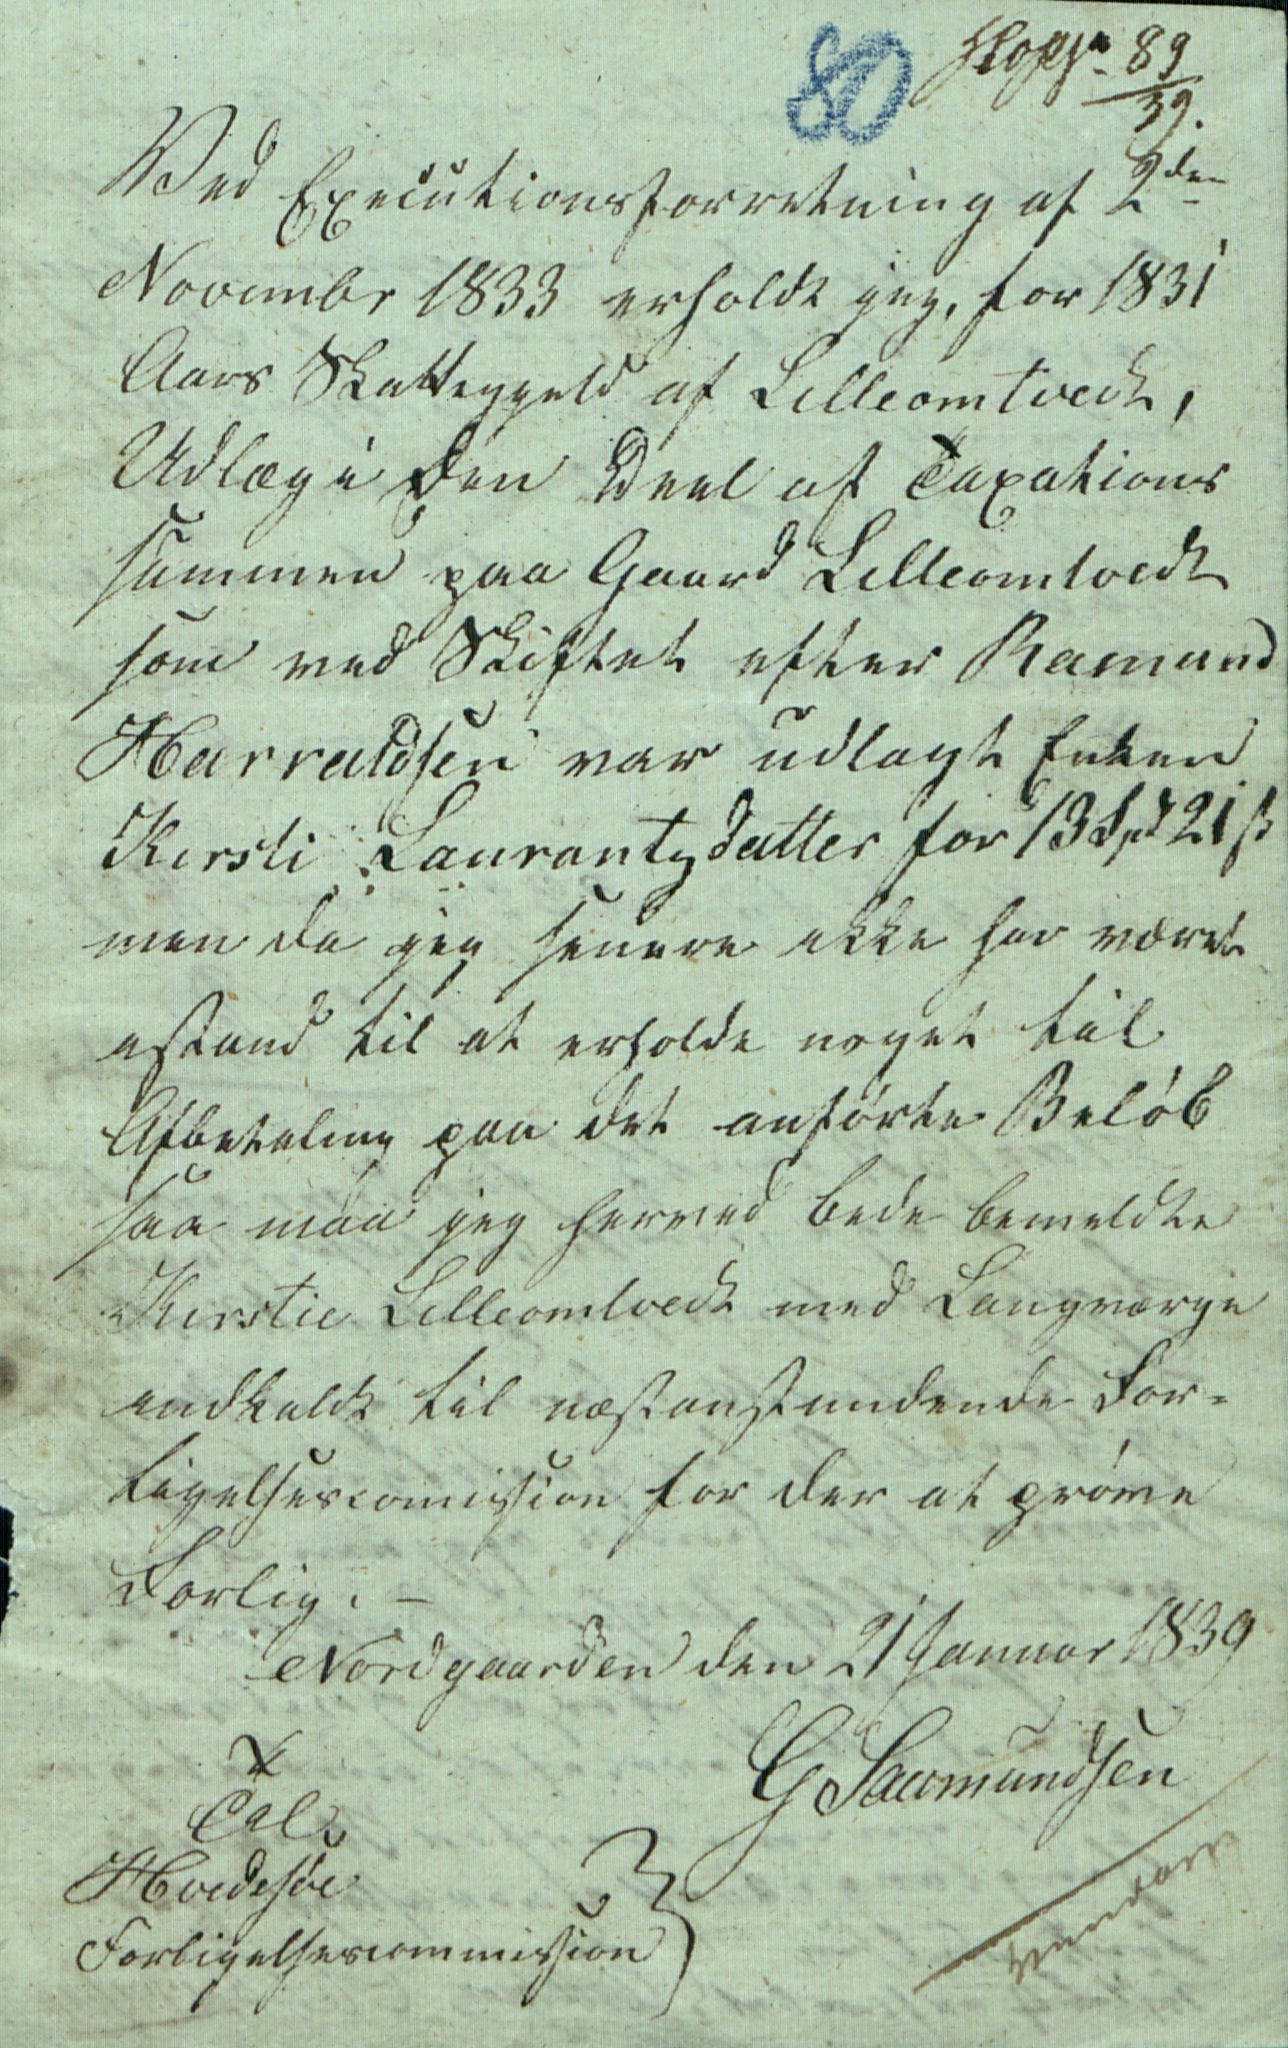 80
89
39.
Ved Executionsforretning af 2den
Novembr 1833 erholdt jeg, for 1831
Aars Skattegjeld af Lilleomtvedt,
Udlæg i den Deel af Taxations
summen paa Gaard Lilleomtvedt
som ved Skiftet efter Ramund
Harraldsen var udlagt Enken
Kirsti Laurantzdatter for 13 Spd 21 ß
men da jeg senere ikke har været
istand til at erholde noget til
Afbetaling paa det anførte Beløb
saa maa jeg herved bede bemeldte
Kirstie Lilleomtvedt med Laugværge
indkaldt til næstanstundende For-
ligelsescomission for der at prøve
Forlig. -
Nordgaarden den 21 Januar 1839
G Saamundsen
Til
Hvidesøe
Forligelsescommission